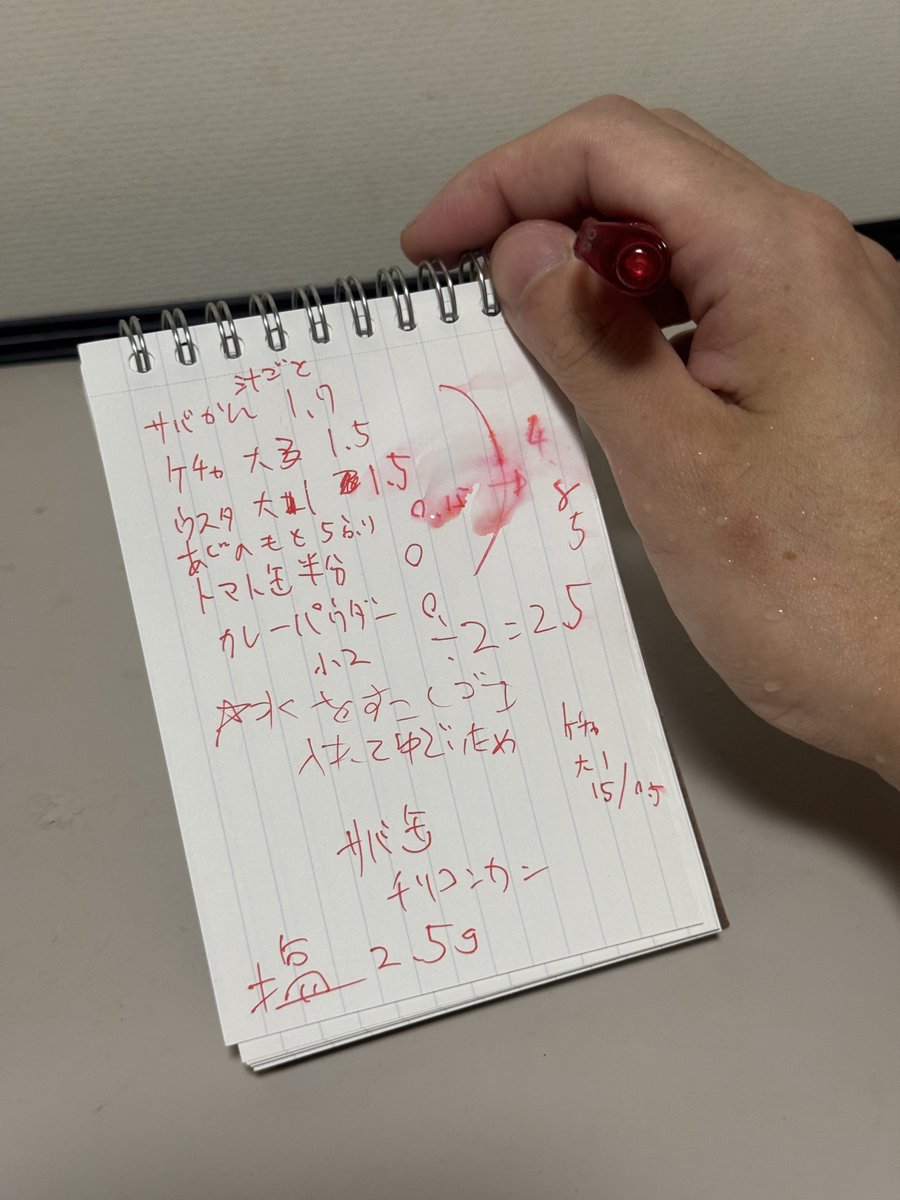 汁ごと
サバかん 1.7
ケチャ 大3 1.5
ウスタ 大1 1.5
あじのもと5ふり 0.15 → 4.8
トマト缶半分 0 5
カレーパウダー 0.
小2 ÷2=25
☆水 を すこし
入れてゆでため
ケチャ
大1
15/0.5
サバ缶
チリコンカン
塩 2.5g